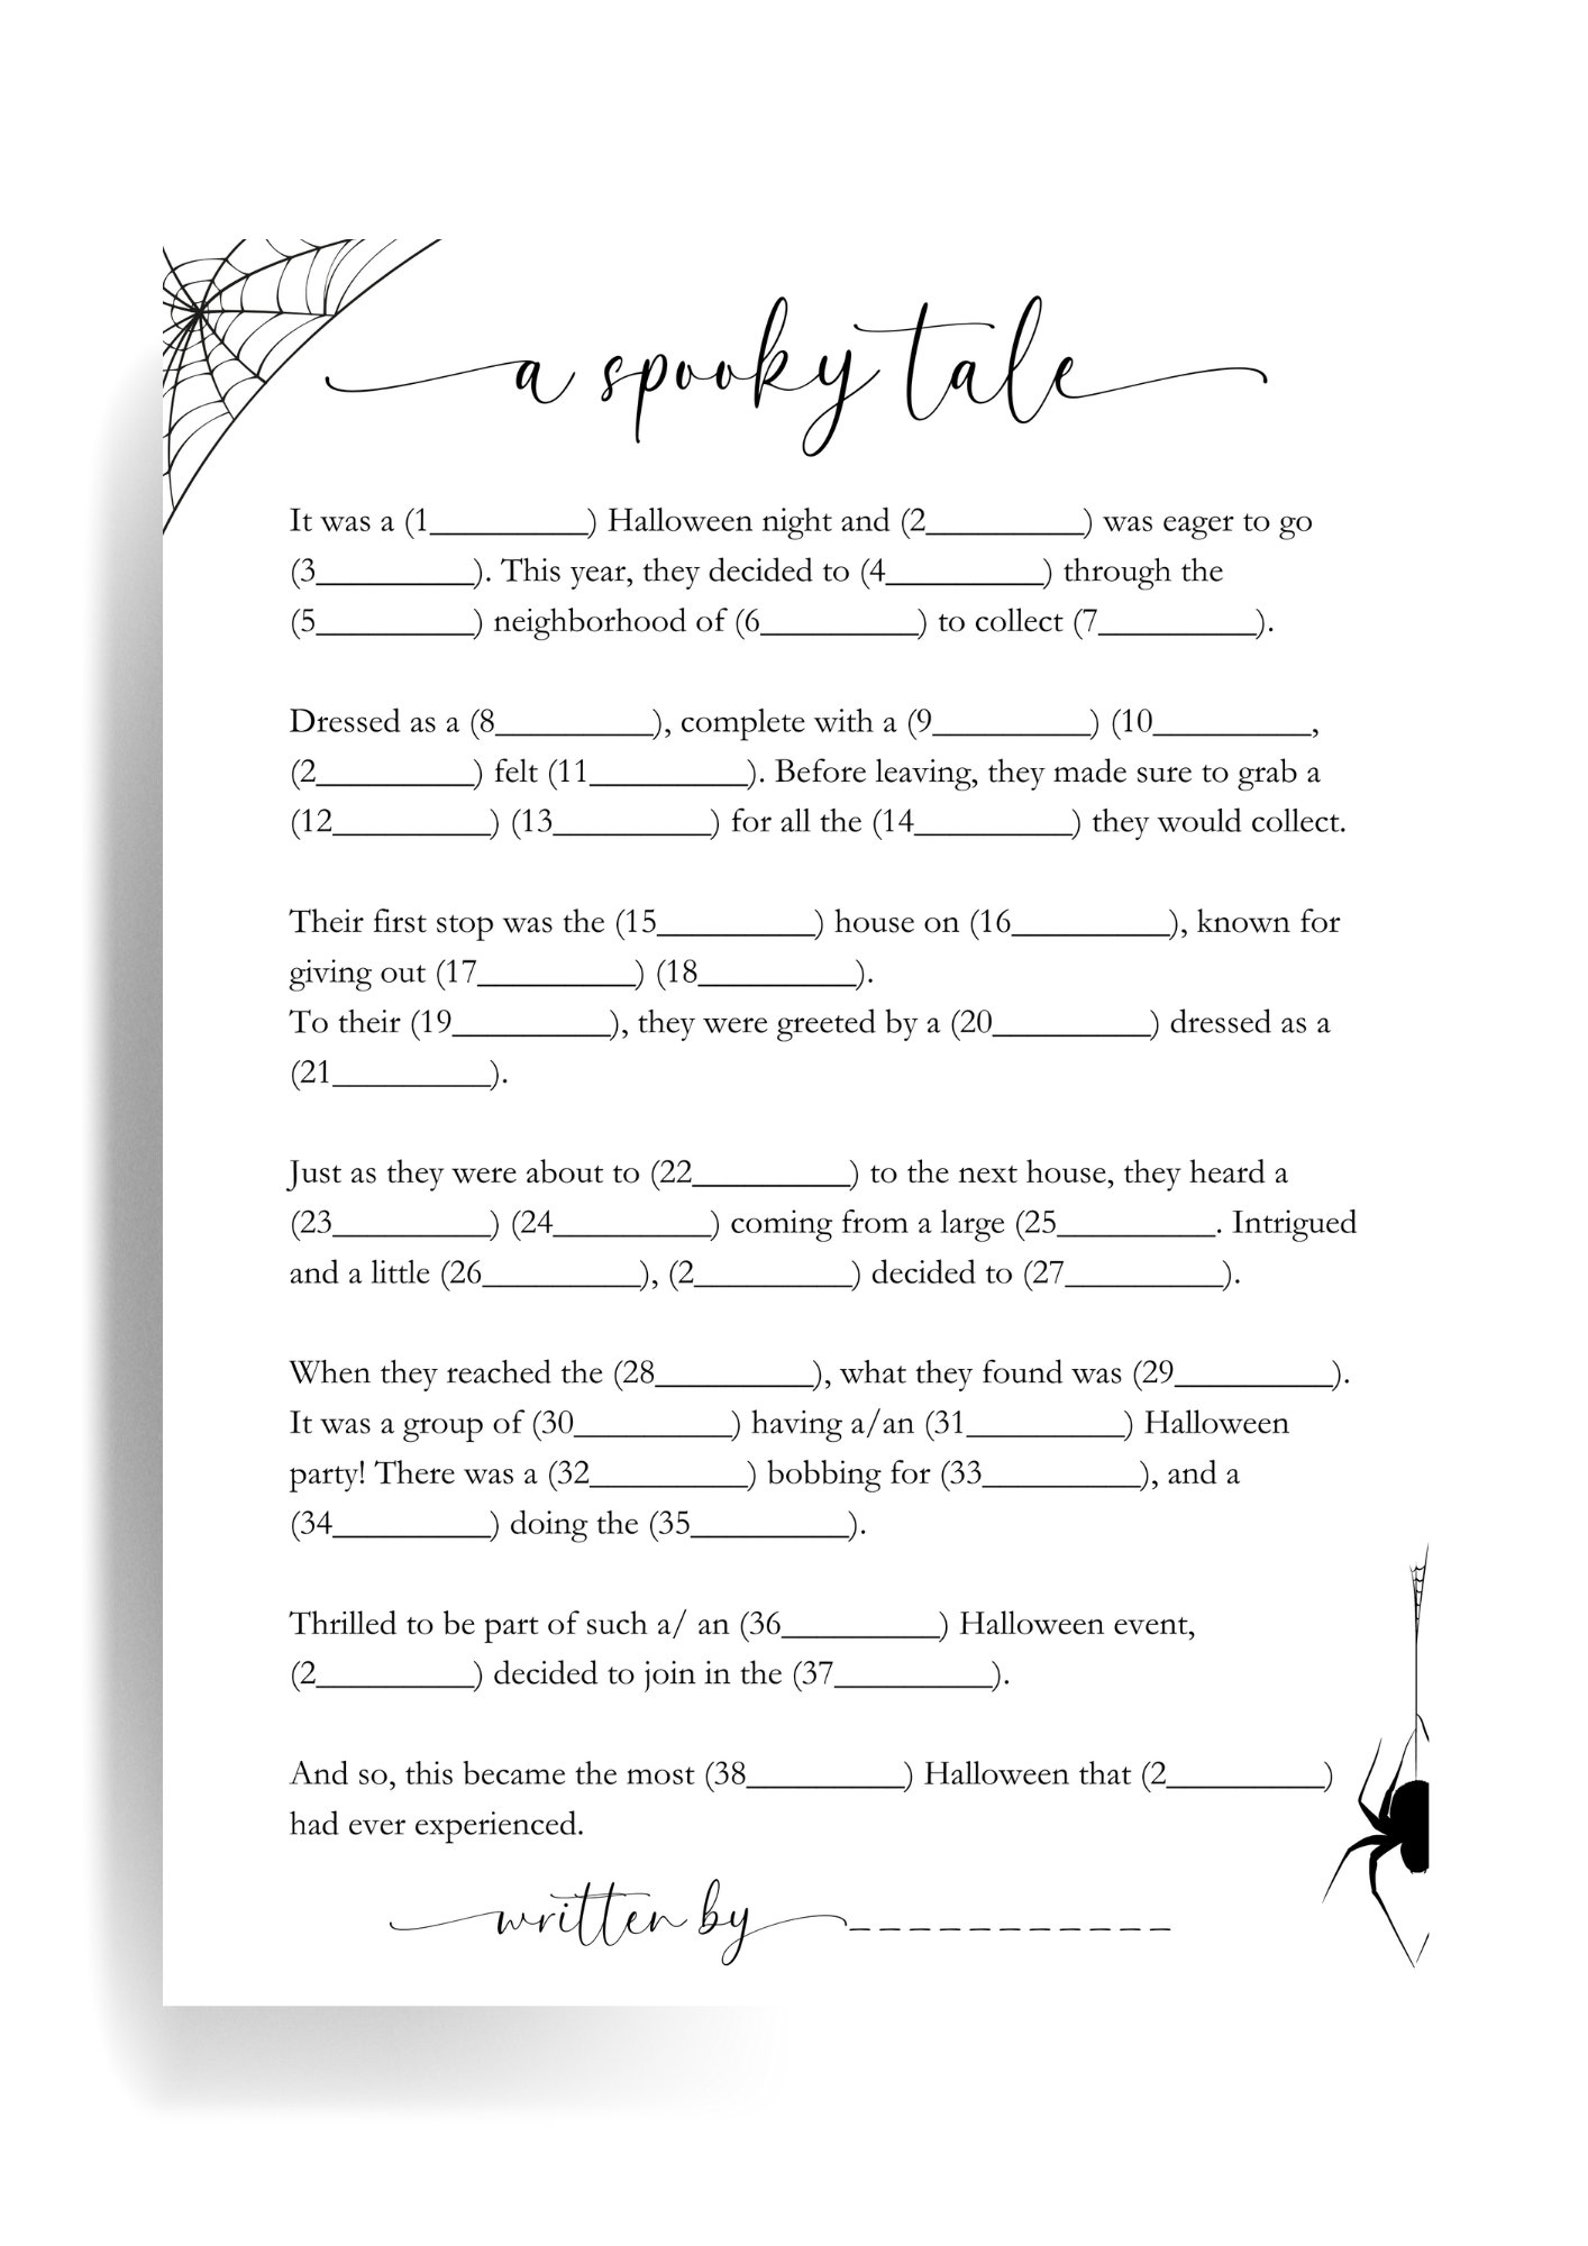 a spooky tale
It was a (1__________) Halloween night and (2__________) was eager to go
(3__________). This year, they decided to (4__________) through the
(5__________) neighborhood of (6__________) to collect (7__________).
Dressed as a (8__________), complete with a (9__________) (10__________,
(2__________) felt (11__________). Before leaving, they made sure to grab a
(12__________) (13__________) for all the (14__________) they would collect.
Their first stop was the (15__________) house on (16__________), known for
giving out (17__________) (18__________).
To their (19__________), they were greeted by a (20__________) dressed as a
(21__________).
Just as they were about to (22__________) to the next house, they heard a
(23__________) (24__________) coming from a large (25__________. Intrigued
and a little (26__________), (2__________) decided to (27__________).
When they reached the (28__________), what they found was (29__________).
It was a group of (30__________) having a/an (31__________) Halloween
party! There was a (32__________) bobbing for (33__________), and a
(34__________) doing the (35__________).
Thrilled to be part of such a/ an (36__________) Halloween event,
(2__________) decided to join in the (37__________).
And so, this became the most (38__________) Halloween that (2__________)
had ever experienced.
written by ___________